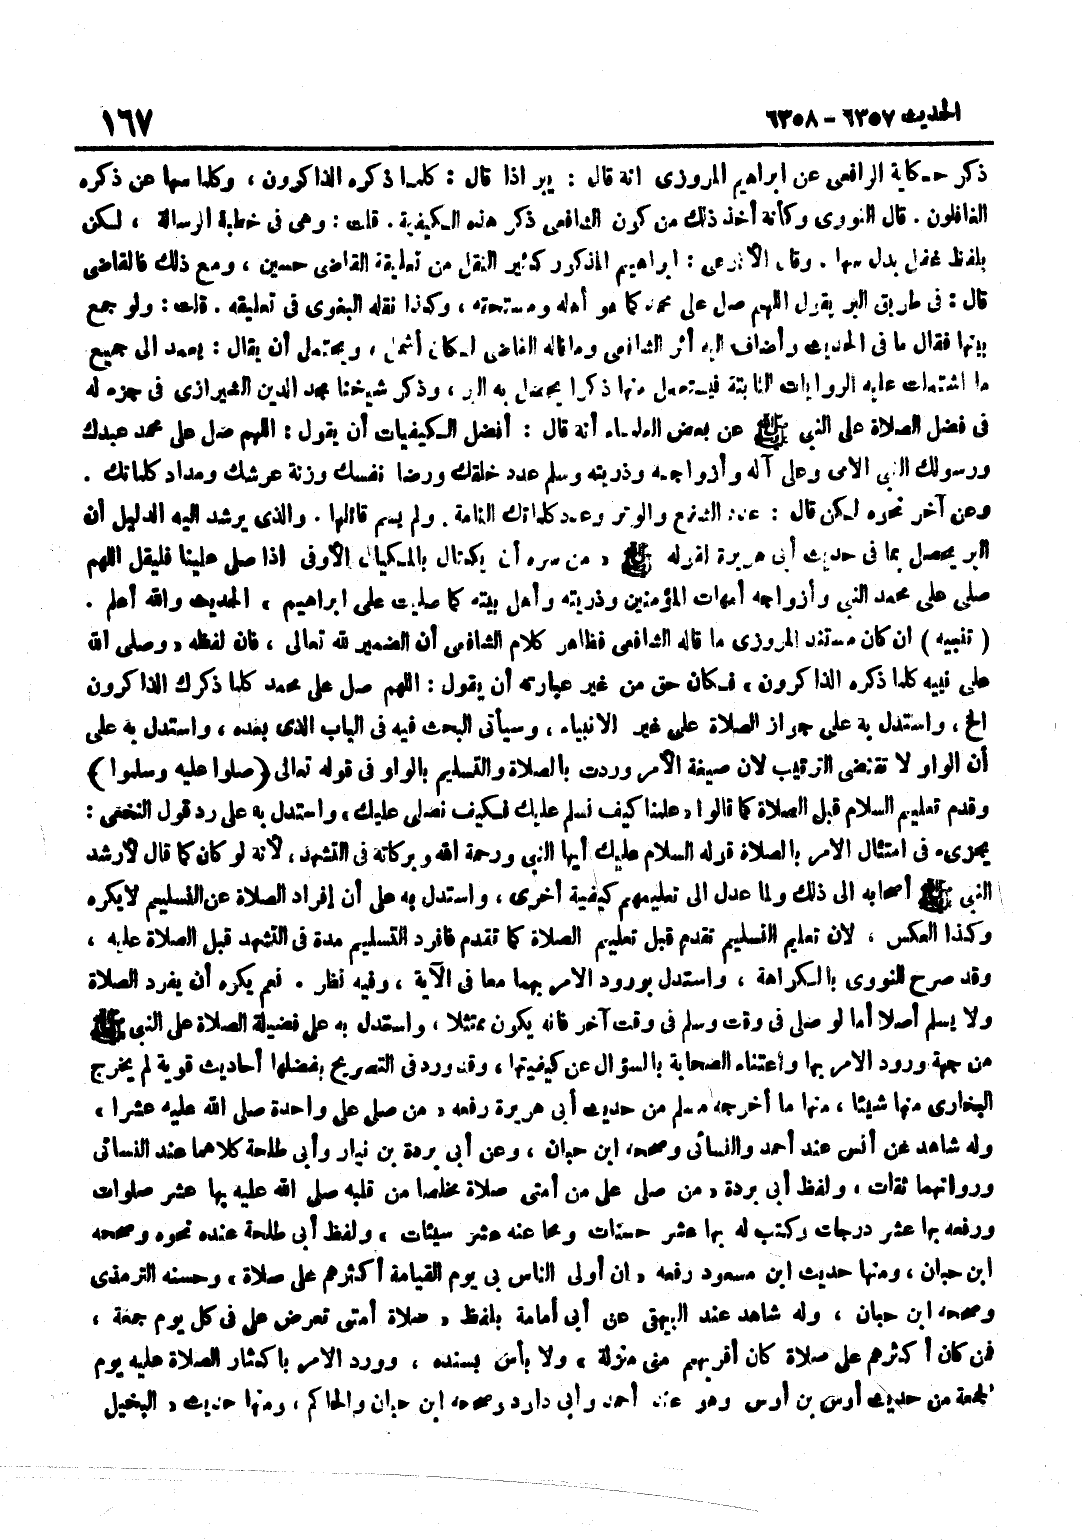 الحديث ٦٣٥٧ - ٦٣٥٨
١٦٧
ذكر حكاية الرافعى عن ابراهيم المروزى انه قال : يبر اذا قال : كلما ذكره الذاكرون ، وكلما سها عن ذكره
الغافلون . قال النووى وكأنه أخذ ذلك من كون الشافعى ذكر هذه الكيفية . قلت : وهى فى خطبة الرسالة ، لكن
بلفظ غفل بدل سها . وقال الأذرعى : ابراهيم المذكور كثير النقل من تعليقة القاضى حسين ، ومع ذلك فالقاضى
قال : فى طريق البر يقول اللهم صل على محمد كما هو أهله ومستحقه ، وكذا نقله البغوى فى تعليقه . قلت : ولو جمع
بينها فقال ما فى الحديث وأضاف اليه أثر الشافعى وما قاله القاضى لكان أشمل ، ويحتمل أن يقال : يعمد الى جميع
ما اشتملت عليه الروايات الثابتة فيستعمل منها ذكرا يحصل به البر ، وذكر شيخنا مجد الدين الشيرازى فى جزء له
فى فضل الصلاة على النبى ﷺ عن بعض العلماء أنه قال : أفضل الكيفيات أن يقول : اللهم صل على محمد عبدك
ورسولك النبى الامى وعلى آله وأزواجه وذريته وسلم عدد خلقك ورضا نفسك وزنة عرشك ومداد كلماتك .
وعن آخر نحوه لكن قال : عدد الشفع والوتر وعدد كلماتك التامة . ولم يسم قائلها . والذى يرشد اليه الدليل أن
البر يحصل بما فى حديث أبى هريرة لقوله ﷺ « من سره أن يكتال بالمكيال الأوفى اذا صلى علينا فليقل اللهم
صلى على محمد النبى وأزواجه أمهات المؤمنين وذريته وأهل بيته كما صليت على ابراهيم » الحديث والله أعلم .
( تنبيه ) ان كان مستند المروزى ما قاله الشافعى فظاهر كلام الشافعى أن الضمير لله تعالى ، فان لفظه « وصلى الله
على نبيه كلما ذكره الذاكرون » فكان حق من غير عبارته أن يقول : اللهم صل على محمد كلما ذكرك الذاكرون
الخ ، واستدل به على جواز الصلاة على غير الانبياء ، وسيأتى البحث فيه فى الباب الذى بعده ، واستدل به على
أن الواو لا تقتضى الترتيب لان صيغة الأمر وردت بالصلاة والتسليم بالواو فى قوله تعالى ( صلوا عليه وسلموا )
وقدم تعليم السلام قبل الصلاة كما قالوا « علمنا كيف نسلم عليك فكيف نصلى عليك » واستدل به على رد قول النخعى :
يجزىء فى امتثال الامر بالصلاة قوله السلام عليك أيها النبى ورحمة الله وبركاته فى التشهد ، لأنه لو كان كما قال لأرشد
النبى ﷺ أصحابه الى ذلك ولما عدل الى تعليمهم كيفية أخرى ، واستدل به على أن إفراد الصلاة عن التسليم لا يكره
وكذا العكس ، لان تعليم التسليم تقدم قبل تعليم الصلاة كما تقدم فافرد التسليم مدة فى التشهد قبل الصلاة عليه ،
وقد صرح النووى بالكراهة ، واستدل بورود الامر بهما معا فى الآية ، وفيه نظر . نعم يكره أن يفرد الصلاة
ولا يسلم أصلا أما لو صلى فى وقت وسلم فى وقت آخر فانه يكون ممتثلا ، واستدل به على فضيلة الصلاة على النبى ﷺ
من جهة ورود الامر بها واعتناء الصحابة بالسؤال عن كيفيتها ، وقد ورد فى التصريح بفضلها أحاديث قوية لم يخرج
البخارى منها شيئا ، منها ما أخرجه مسلم من حديث أبى هريرة رفعه « من صلى على واحدة صلى الله عليه عشرا »
وله شاهد عن أنس عند أحمد والنسائى وصححه ابن حبان ، وعن أبى بردة بن نيار وأبى طلحة كلاهما عند النسائى
ورواتهما ثقات ، ولفظ أبى بردة « من صلى على من أمتى صلاة مخلصا من قلبه صلى الله عليه بها عشر صلوات
ورفعه بها عشر درجات وكتب له بها عشر حسنات ومحا عنه عشر سيئات » ولفظ أبى طلحة عنده نحوه وصححه
ابن حبان ، ومنها حديث ابن مسعود رفعه « ان أولى الناس بى يوم القيامة أكثرهم على صلاة » وحسنه الترمذى
وصححه ابن حبان ، وله شاهد عند البيهقى عن أبى أمامة بلفظ « صلاة أمتى تعرض على فى كل يوم جمعة ،
فمن كان أكثرهم على صلاة كان أقربهم منى منزلة » ولا بأس بسنده ، وورد الامر باكثار الصلاة عليه يوم
الجمعة من حديث أوس بن أوس وهو عند أحمد وأبى داود وصححه ابن حبان والحاكم ، ومنها حديث « البخيل